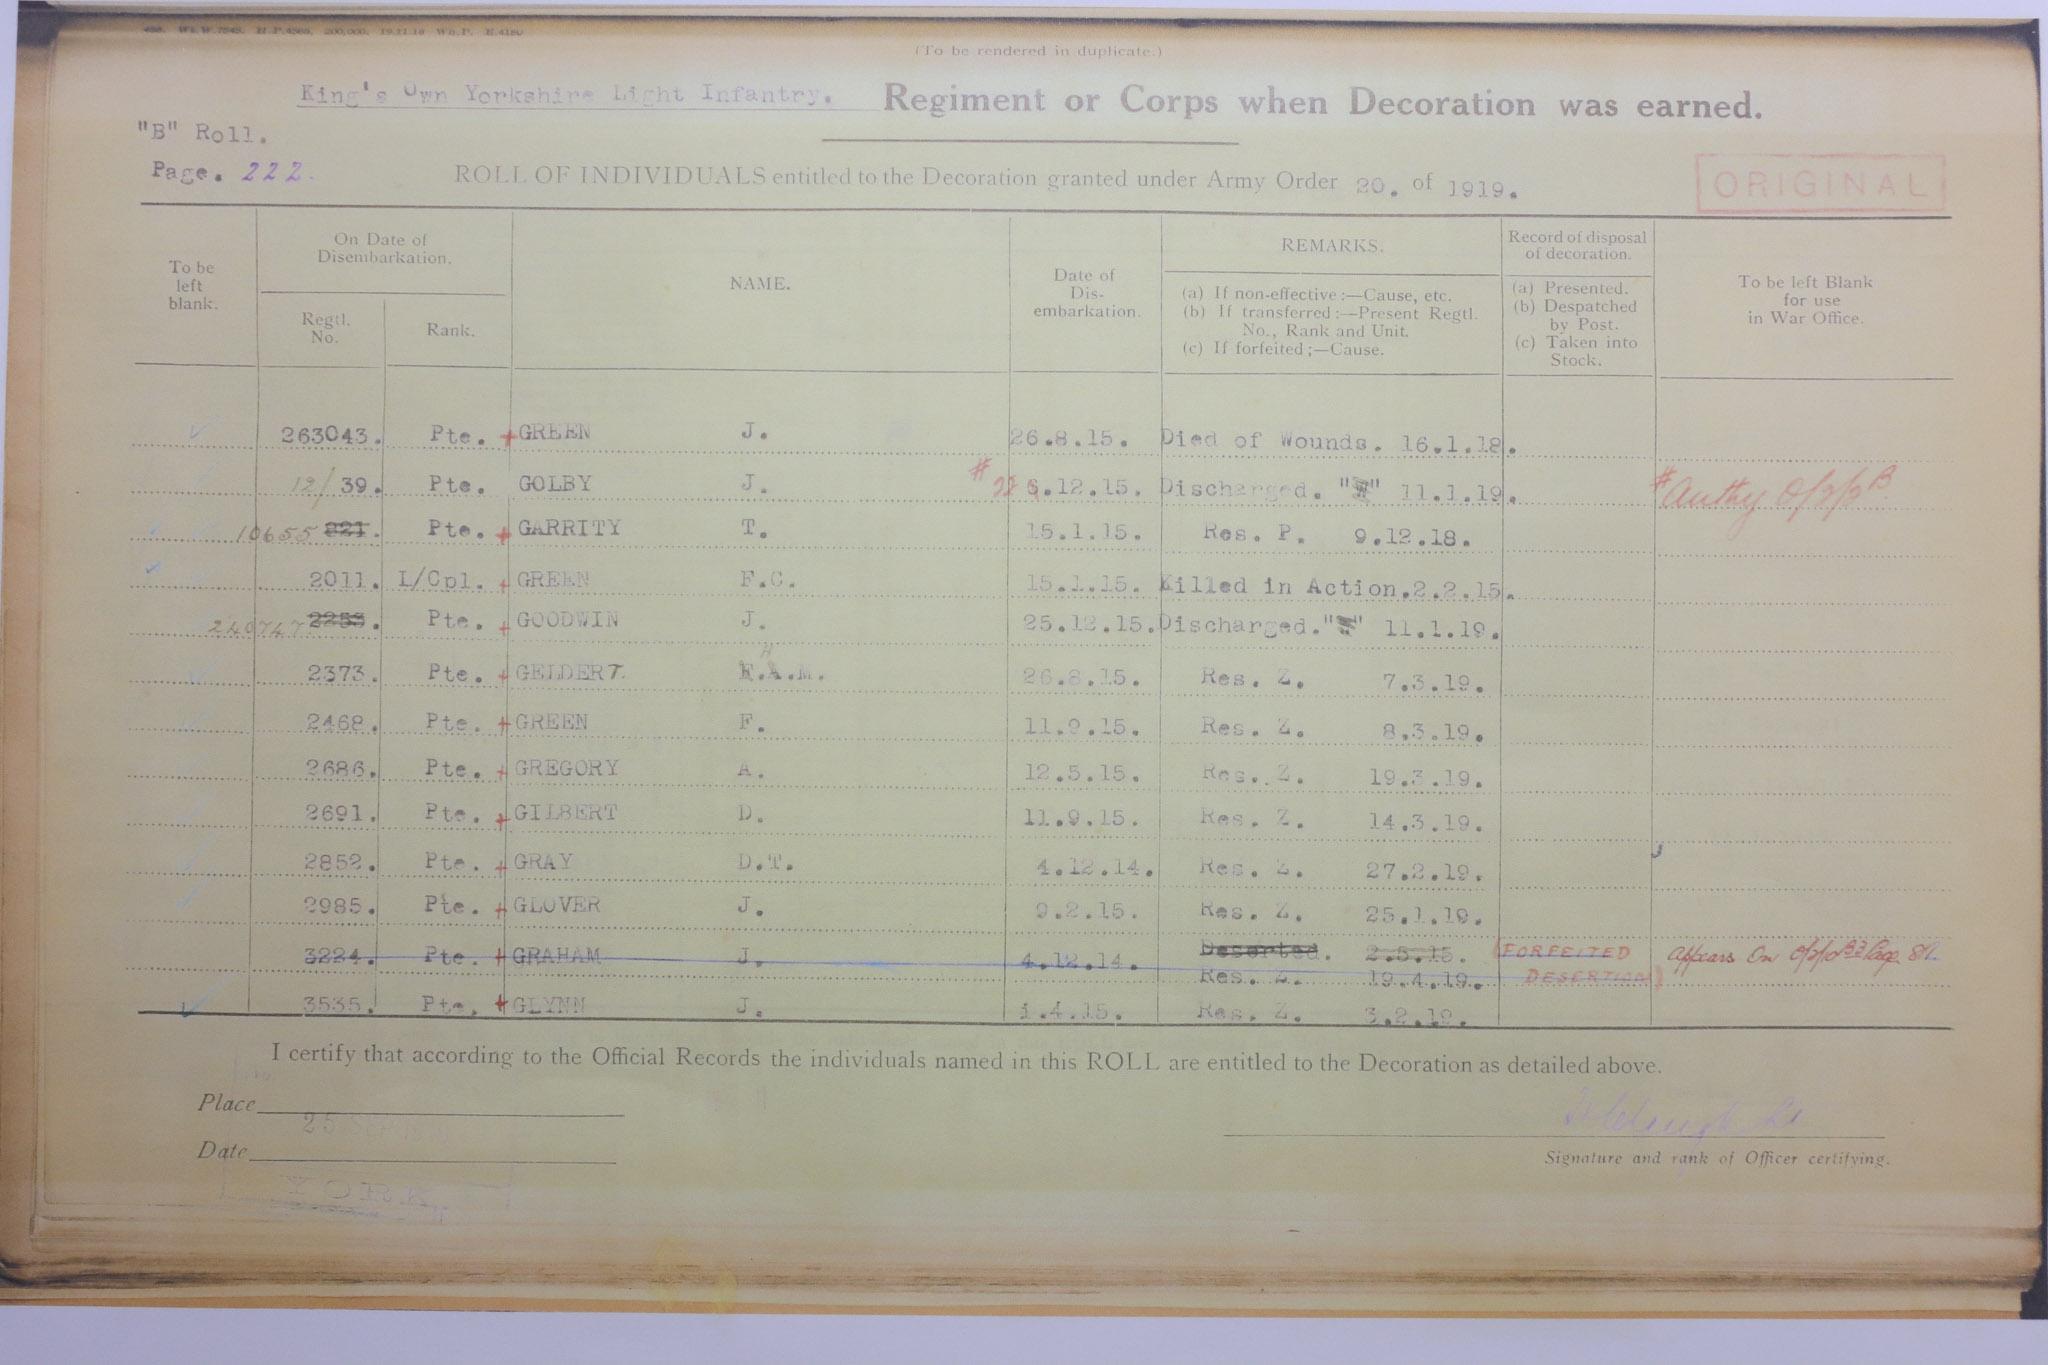 (To be rendered in duplicate.)
King's Own Yorkshire Light Infantry. Regiment or Corps when Decoration was earned.
"B" Roll.
Page. 222. ROLL OF INDIVIDUALS entitled to the Decoration granted under Army Order 20. of 1919. ORIGINAL
To be left blank.
On Date of Disembarkation.
Regtl. No.
Rank.
NAME.
Date of Dis-embarkation.
REMARKS.
(a) If non-effective:—Cause, etc.
(b) If transferred:—Present Regtl. No., Rank and Unit.
(c) If forfeited;—Cause.
Record of disposal of decoration.
(a) Presented.
(b) Despatched by Post.
(c) Taken into Stock.
To be left Blank for use in War Office.
263043. Pte. + GREEN J. 26.8.15. Died of Wounds. 16.1.18.
12/39. Pte. GOLBY J. # 22 6.12.15. Discharged. 11.1.19. # Authy
10655 221. Pte. + GARRITY T. 15.1.15. Res. P. 9.12.18.
2011. L/Cpl. + GREEN F.C. 15.1.15. Killed in Action. 2.2.15.
240747 2253. Pte. + GOODWIN J. 25.12.15. Discharged. 11.1.19.
2373. Pte. + GELDERT H.A.M. 26.8.15. Res. Z. 7.3.19.
2468. Pte. + GREEN F. 11.9.15. Res. Z. 8.3.19.
2686. Pte. + GREGORY A. 12.5.15. Res. Z. 19.3.19.
2691. Pte. + GILBERT D. 11.9.15. Res. Z. 14.3.19.
2852. Pte. + GRAY D.T. 4.12.14. Res. Z. 27.2.19.
2985. Pte. + GLOVER J. 9.2.15. Res. Z. 25.1.19.
3224. Pte. + GRAHAM J. 4.12.14. Deserted. 2.5.15. (FORFEITED Appears On Page
Res. Z. 19.4.19. DESERTION)
3535. Pte. + GLYNN J. 1.4.15. Res. Z. 3.2.19.
I certify that according to the Official Records the individuals named in this ROLL are entitled to the Decoration as detailed above.
Place
25
Date
Signature and rank of Officer certifying.
YORK